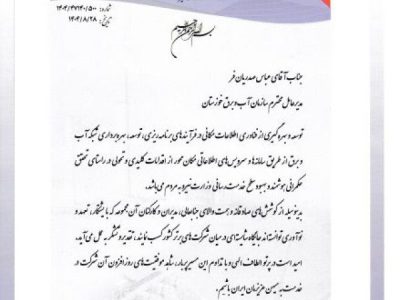 شماره: ۱۴۰۴/۴۷۱۴۰/۵۰۰
تاریخ: ۱۴۰۴/۸/۲۸
جناب آقای عباس صدریان فر
مدیرعامل محترم سازمان آب و برق خوزستان
توسعه و بهره‌گیری از فناوری اطلاعات مکانی در فرآیندهای برنامه ریزی، توسعه، بهره‌برداری شبکه آب
و برق از طریق سامانه‌ها و سرویس‌های اطلاعاتی مکان محور از اقدامات کلیدی و تحولی در راستای تحقق
حکمرانی هوشمند و بهبود سطح خدمت رسانی وزارت نیرو به مردم می‌باشد.
بدینوسیله از کوشش‌های صادقانه و همت والای جنابعالی، مدیران و کارکنان آن مجموعه که با پشتکار، تعهد و
نوآوری توانسته‌اند جایگاه شایسته‌ای در میان شرکت‌های برتر کشور کسب نمایند، تقدیر و تشکر به عمل می‌آید.
امید است در پرتو الطاف الهی و با تداوم این مسیر پربار، شاهد موفقیت‌های روزافزون آن شرکت در
خدمت به میهن عزیزمان ایران باشیم.